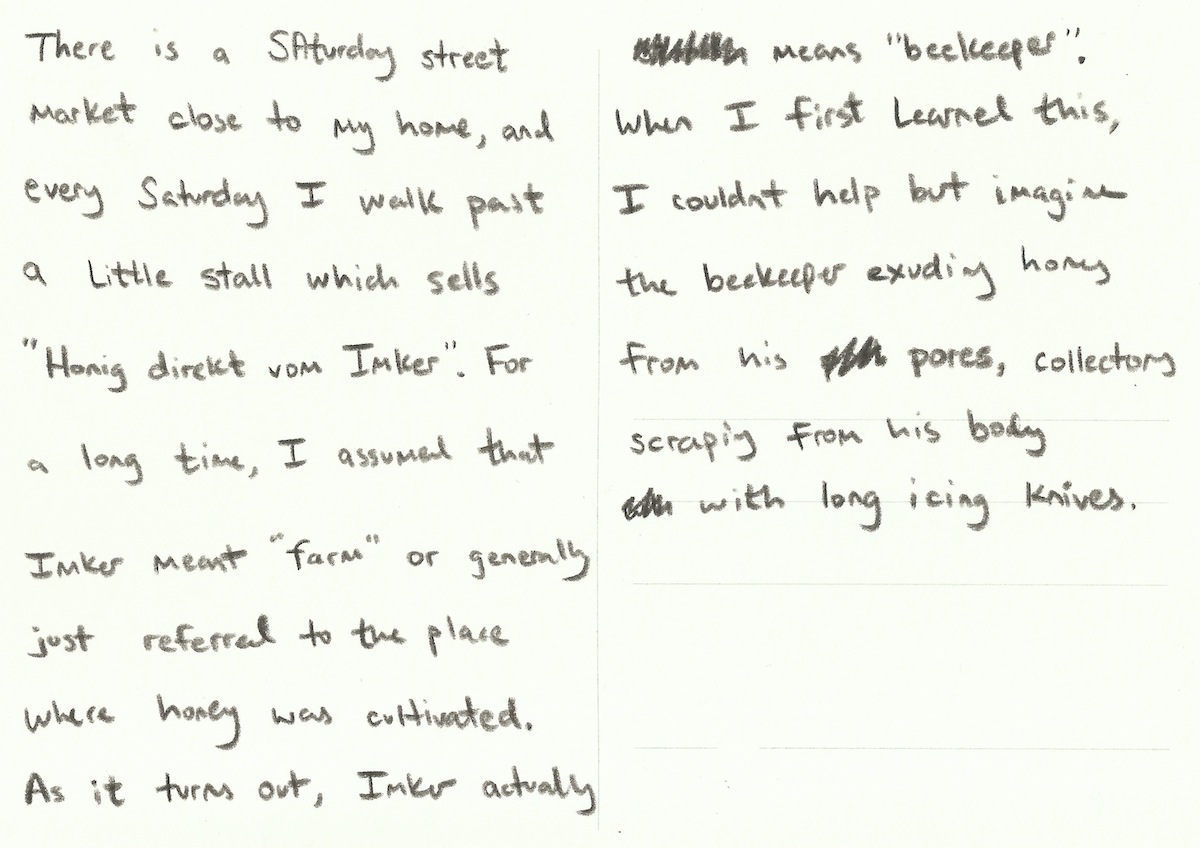 There is a SAturday street
market close to my home, and
every Saturday I walk past
a little stall which sells
"Honig direkt vom Imker". For
a long time, I assumed that
Imker meant "farm" or generally
just referred to the place
where honey was cultivated.
As it turns out, Imker actually
means "beekeeper".
When I first Learned this,
I couldnt help but imagine
the beekeeper exuding honey
from his pores, collectors
scraping from his body
with long icing knives.